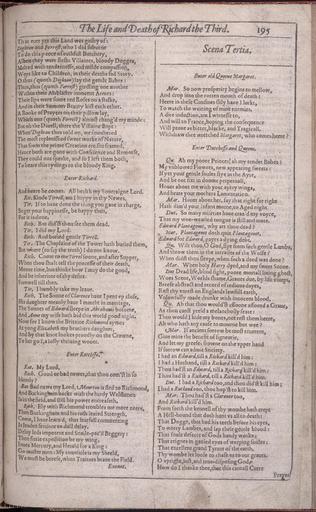 The Life and Death of Richard the Third. 195
That ever yet this Land was guilty of:
Dighton and Forrest, who I did suborne
To do this peece of
Albeit they were flesht Villaines, bloody Dogges,
Melted with tendernesse, and milde compassion,
Wept like to Children, in their deaths sad Story.
O thus (quoth Dighton) lay the gentle Babes:
Thus, thus (quoth Forrest) girdling one another
Within their Alablaster innocent Armes:
Their lips were foure red Roses on a stalke,
And in their Summer Beauty kist each other.
A Booke of Prayers on their pillow lay,
Which one (quoth Forrest) almost chang'd my minde:
But oh the Divell, there the Villaine stopt:
When Dighton thus told on, we smothered
The most replenished sweet worke of Nature,
That from the prime Creation ere she framed.
Hence both are gone with Conscience and Remorse,
They could not speake, and so I left them both,
To beare this tydings to the bloody King.
Enter Richard.
And heere he comes. All health my Soveraigne Lord.
Ric. Kinde Tirrel, am I happy in thy Newes.
Tir. If to have done the thing you gave in charge,
Beget your happinesse, be happy then,
For it is done.
Rich. But did'st thou see them dead.
Tir. I did my Lord.
Rich. And buried gentle Tirrel.
Tir. The Chaplaine of the Tower hath buried them,
But where (to say the truth) I do not know.
Rich. Come to me Tirrel soone, and after Supper,
When thou shalt tell the processe of their death.
Meane time, but thinke how I may do thee good,
And be inheritor of thy desire.
Farewell till then.
Tir. I humbly take my leave.
Rich. The Sonne of Clarence have I pent up close,
His daughter meanly have I matcht in marriage,
The Sonnes of Edward sleepe in Abrahams bosome,
And Anne my wife hath bid this world good night.
Now for I know the Britaine Richmond aymes
At yong Elizabeth my brothers daughter,
And by that knot lookes proudly on the Crowne,
To her go I, a jolly thriving wooer.
Enter Ratcliffe.
Rat. My Lord.
Rich. Good or bad newes, that thou com'st in so
bluntly?
Rat. Bad news my Lord, Mourton is fled to Richmond,
And Buckingham backt with the hardy Welshmen
Is in the field, and still his power encreaseth.
Rich. Ely with Richmond troubles me more neere,
Then Buckingham and his rash levied Strength.
Come, I have learn'd, that fearfull commenting
Is leaden servitor to dull delay.
Delay leds impotent and Snaile-pac'd Beggery:
Then fierie expedition be my wing,
Joves Mercury, and Herald for a King:
Go muster men: My counsaile is my Sheeld,
We must be breefe, when Traitors brave the Field.
Exeunt.
Scena Tertia.
Enter old Queene Margaret.
Mar. So now prosperity begins to mellow,
And drop into the rotten mouth of death:
Heere in these Confines slily have I lurkt,
To watch the waining of mine enemies.
A dire induction, am I witnesse to,
And will to France, hoping the consequence
Will prove as bitter, blacke, and Tragicall.
Withdraw thee wretched Margaret, who comes heere?
Enter Dutchesse and Queene.
Qu. Ah my poore Princes! ah my tender Babes:
My unblowne Flowres, new appearing sweets:
If yet your gentle soules flye in the Ayre,
And be not fixt in doome perpetuall,
Hover about me with your ayery wings,
And heare your mothers Lamentation.
Mar. Hover about her, say that right for right
Hath dim'd your Infant morne, to Aged night.
Dut. So many miseries have craz'd my voyce,
That my woe-wearied tongue is still and mute.
Edward Plantagenet, why art thou dead?
Mar. Plantagenet doth quit Plantagenet,
Edward for Edward, payes a dying debt.
Qu. Wilt thou, O God, flye from such gentle Lambs,
And throw them in the intrailes of the Wolfe?
When didst thou sleepe, when such a deed was done?
Mar. When holy Harry dyed, and my sweet Sonne.
Dut. Dead life, blind sight, poore mortall living ghost,
Woes Scene, Worlds shame, Graves due, by life usurpt,
Breefe abstract and record of tedious dayes,
Rest thy unrest on Englands lawfull earth,
Unlawfully made drunke with innocent blood.
Qu. Ah that thou wouldst assoone affoord a Grave,
As thou canst yeeld a melancholly seate:
Then would I hide my bones, not rest them heere,
Ah who hath any cause to mourne but wee?
Mar. If ancient sorrow be most reverent,
Give mine the benefit of signeurie,
And let my greefes frowne on the upper hand
If sorrow can admit Society.
I had an Edward, till a Richard kill'd him:
I had a Husband, till a Richard kill'd him:
Thou had'st an Edward, till a Richard kill'd him:
Thou had'st a Richard, till a Richard kill'd him.
Dut. I had a Richard too, and thou did'st kill him;
I had a Rutland too, thou hop'st to kill him.
Mar. Thou had'st a Clarence too,
And Richard kill'd him.
From forth the kennell of thy wombe hath crept
A Hell-hound that doth hunt us all to death:
That Dogge, that had his teeth before his eyes,
To worry Lambes, and lap their gentle blood:
That foule defacer of Gods handy worke:
That reignes in gauled eyes of weeping soules:
That excellent grand Tyrant of the earth,
Thy wombe let loose to chase us to our graves.
O upright, just, and true-disposing God,
How do I thanke thee, that this carnall Curre
Preyes